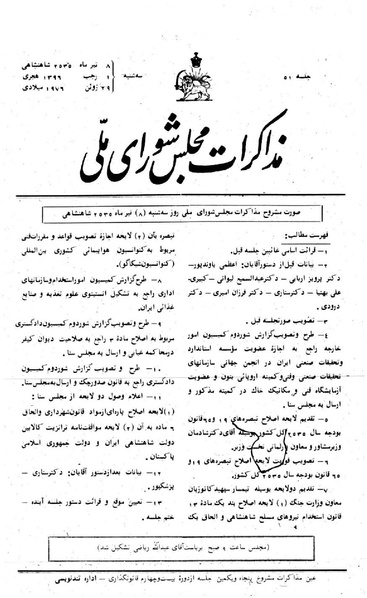 جلسه ۵۱
سه‌شنبه
۸ تیر ماه ۲۵۳۵ شاهنشاهی
۱ رجب ۱۳۹۶ هجری
۲۹ ژوئن ۱۹۷۶ میلادی
مذاکرات مجلس شورای ملی
صورت مشروح مذاکرات مجلس‌شورای ملی روز سه‌شنبه (۸) تیر ماه ۲۵۳۵ شاهنشاهی
فهرست مطالب:
۱ـ قرائت اسامی غائبین جلسه قبل.
۲ـ بیانات قبل‌از دستورآقایان: اعظمی باوندپور ـ
دکتر پرویز اربابی ـ دکترعبدالسمیع لیوانی ـ کبیری ـ
علی بهنیا ـ دکترستاری ـ دکتر فرزان امیری ـ دکتر
درودی.
۳ـ تصویب صورتجلسه قبل.
۴ـ طرح وتصویب‌گزارش شوردوم کمیسیون امور
خارجه راجع به اجازه عضویت مؤسسه استاندارد
وتحقیقات صنعتی ایران در انجمن جهانی سازمانهای
تحقیقات صنعتی وفنی‌وکمیته اروپائی بتون و اتحادیه
آزمایشگاه فنی و مکانیک خاک در کمیته مذکور و
ارسال به مجلس سنا.
۵ـ تقدیم لایحه اصلاح تبصره‌های ۱۹ و۶۵قانون
بودجه سال ۲۵۳۵ کل کشور بوسیله آقای‌دکترشادمان
وزیرمشاور و معاون پارلمانی نخست وزیر.
۶ـ تصویب فوریت لایحه اصلاح تبصره‌های ۱۹و
۶۵ قانون بودجه سال ۲۵۳۵ کل کشور.
۷ـ تقدیم دولایحه بوسیله تیمسار سپهبد کاتوزیان
معاون وزارت جنگ ۱) لایحه اصلاح بند یک ماده ۱۳
قانون استخدام نیروهای مسلح شاهنشاهی و الحاق یک
تبصره بآن ۲) لایحه اجازه تصویب قواعد و مقررات‌فنی
مربوط به‌کنوانسیون هواپیمائی کشوری بین‌المللی
(کنوانسیون‌شیکاگو).
۸ـ طرح‌گزارش کمیسیون اموراستخدام‌وسازمانهای
اداری راجع به تشکیل انستیتوی علوم تغذیه و صنایع
غذائی ایران.
۹ـ طرح و تصویب‌گزارش شوردوم کمیسیون‌دادگستری
مربوط به اصلاح ماده ۲ راجع به صلاحیت دیوان کیفر
درمحاکمه غیابی و ارسال به مجلس سنا.
۱۰ـ طرح و تصویب گزارش شوردوم کمیسیون
دادگستری راجع به قانون صدورچک و ارسال‌به‌مجلس‌سنا.
۱۱ـ اعلام وصول دو لایحه از مجلس سنا:
۱)لایحه اصلاح پاره‌ای‌ازمواد قانون‌شهرداری والحاق
۶ ماده به آن ۲) لایحه موافقت‌نامه ترانزیت کالابین
دولت شاهنشاهی ایران و دولت جمهوری اسلامی
پاکستان.
۱۲ـ بیانات بعدازدستور آقایان: دکترستاری ـ
پزشکپور.
۱۳ـ تعیین موقع و قرائت دستور جلسه آینده ـ
ختم جلسه.
(مجلس ساعت ۹ صبح بریاست‌آقای عبدالله ریاضی تشکیل شد)
عین مذاکرات مشروح پنجاه ویکمین جلسه ازدورهٔ بیست‌وچهارم قانونگذاری ـ اداره تندنویسی